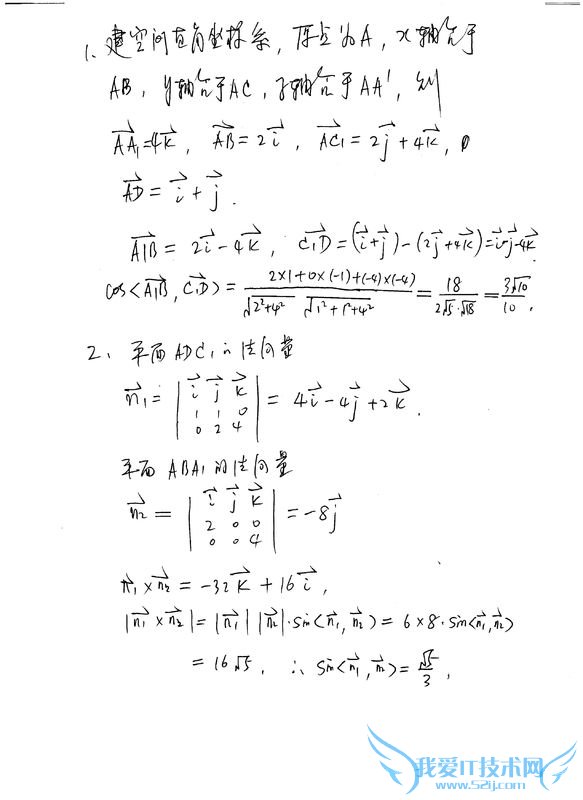 1. 建空间直角坐标系, 原点为A, x轴位于
AB, y轴位于AC, z轴位于AA', 则
AA₁=4k, AB=2i, AC₁=2j+4k,
AD=i+j.
A₁B=2i-4k, C₁D=(i+j)-(2j+4k)=i-j-4k.
cos<A₁B, C₁D>= 2×1+0×(-1)+(-4)×(-4) / √2²+4² √1²+1²+4² = 18 / 2√5·√18 = 3√10 / 10.
2. 平面ADC₁的法向量
n₁= | i j k | = 4i-4j+2k.
1 1 0
0 2 4
平面ABA₁的法向量
n₂= | i j k | = -8j
2 0 0
0 0 4
n₁×n₂=-32k+16i,
|n₁×n₂|=|n₁||n₂|·sin<n₁,n₂>=6×8·sin<n₁,n₂>
=16√5, ∴ sin<n₁,n₂>= √5 / 3.
我爱IT技术网
www.52ij.com